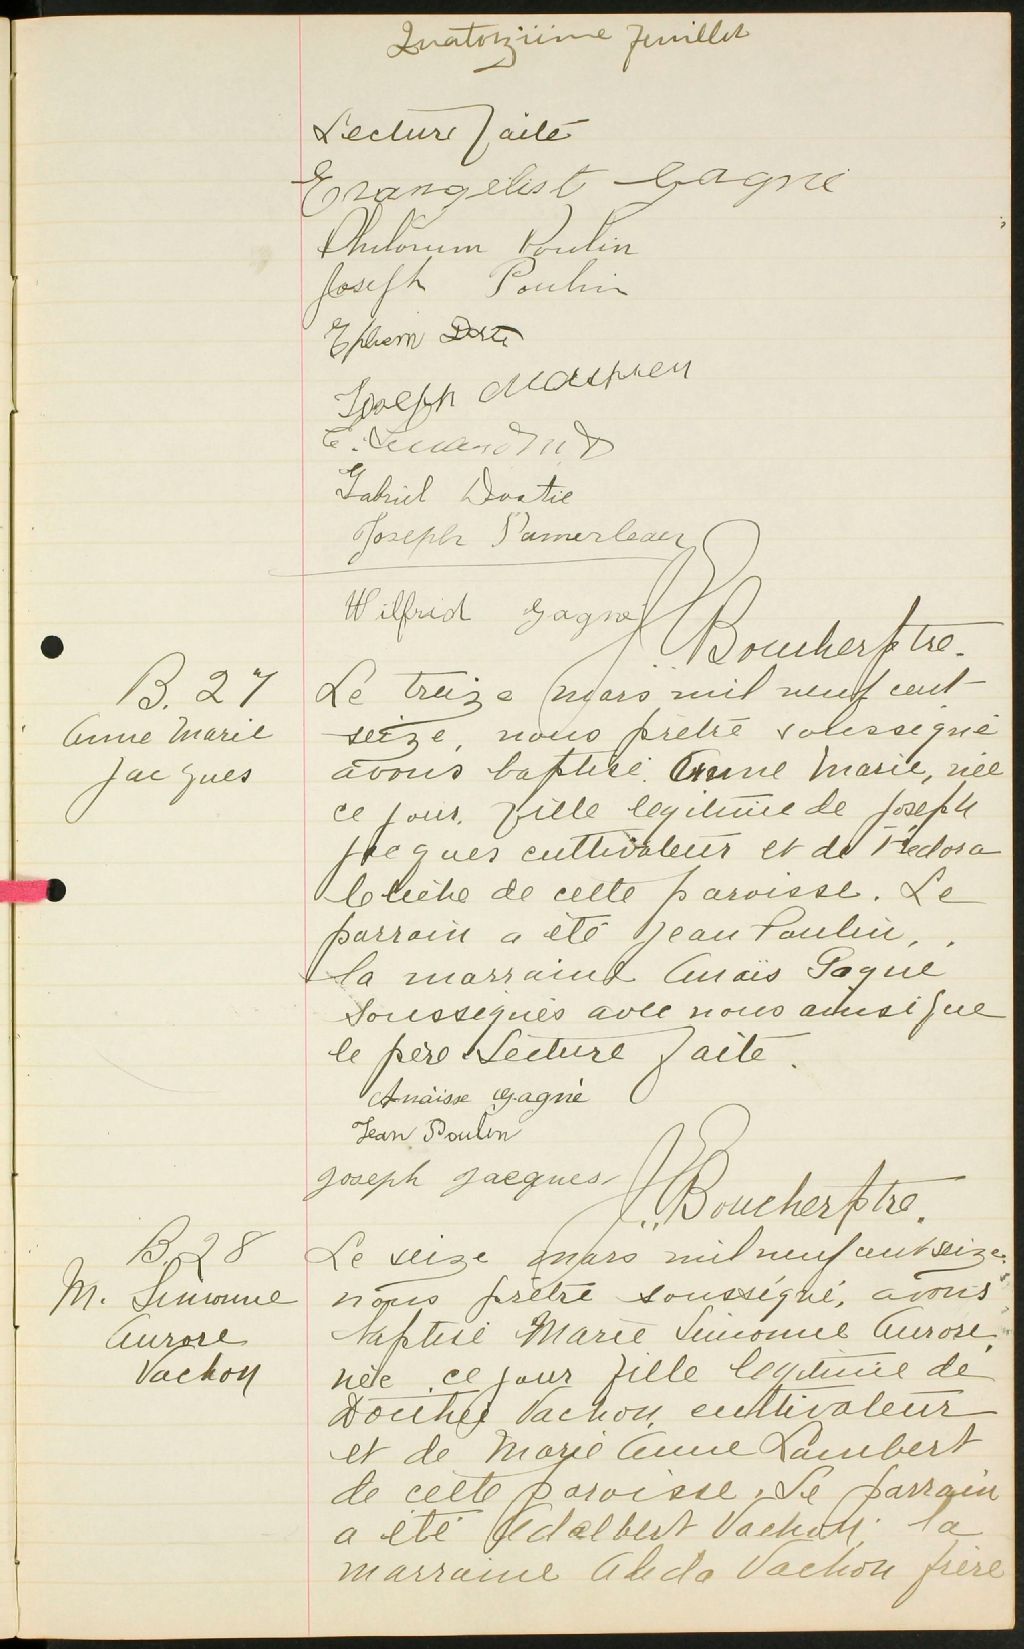 Quatorzième feuillet
Lecture faite
Evangelist Gagné
Philorum Poulin
Joseph Poulin
Ephrem
Joseph
Gabriel Dostie
Joseph Pamerleau
Wilfrid Gagné
J Boucher ptre.
B. 27
Anne Marie
Jacques
Le treize mars mil neuf cent
seize, nous prêtre soussigné
avons baptisé Anne Marie, née
ce jour, fille legitime de Joseph
Jacques cultivateur et de Fedora
Cliche de cette paroisse. Le
parrain a été Jean Poulin,
la marraine Anaïs Gagné
soussignés avec nous ainsi que
le père. Lecture faite.
Anaisse Gagné
Jean Poulin
Joseph Jacques
J Boucher ptre.
B. 28
M. Simonne
Aurore
Vachon
Le seize mars mil neuf cent seize
nous prêtre soussigné, avons
baptisé Marie Simonne Aurore,
née ce jour fille legitime de
Vachon, cultivateur
et de Marie Anne Lambert
de cette paroisse. Le parrain
a été Adalbert Vachon, la
marraine Alida Vachon frère